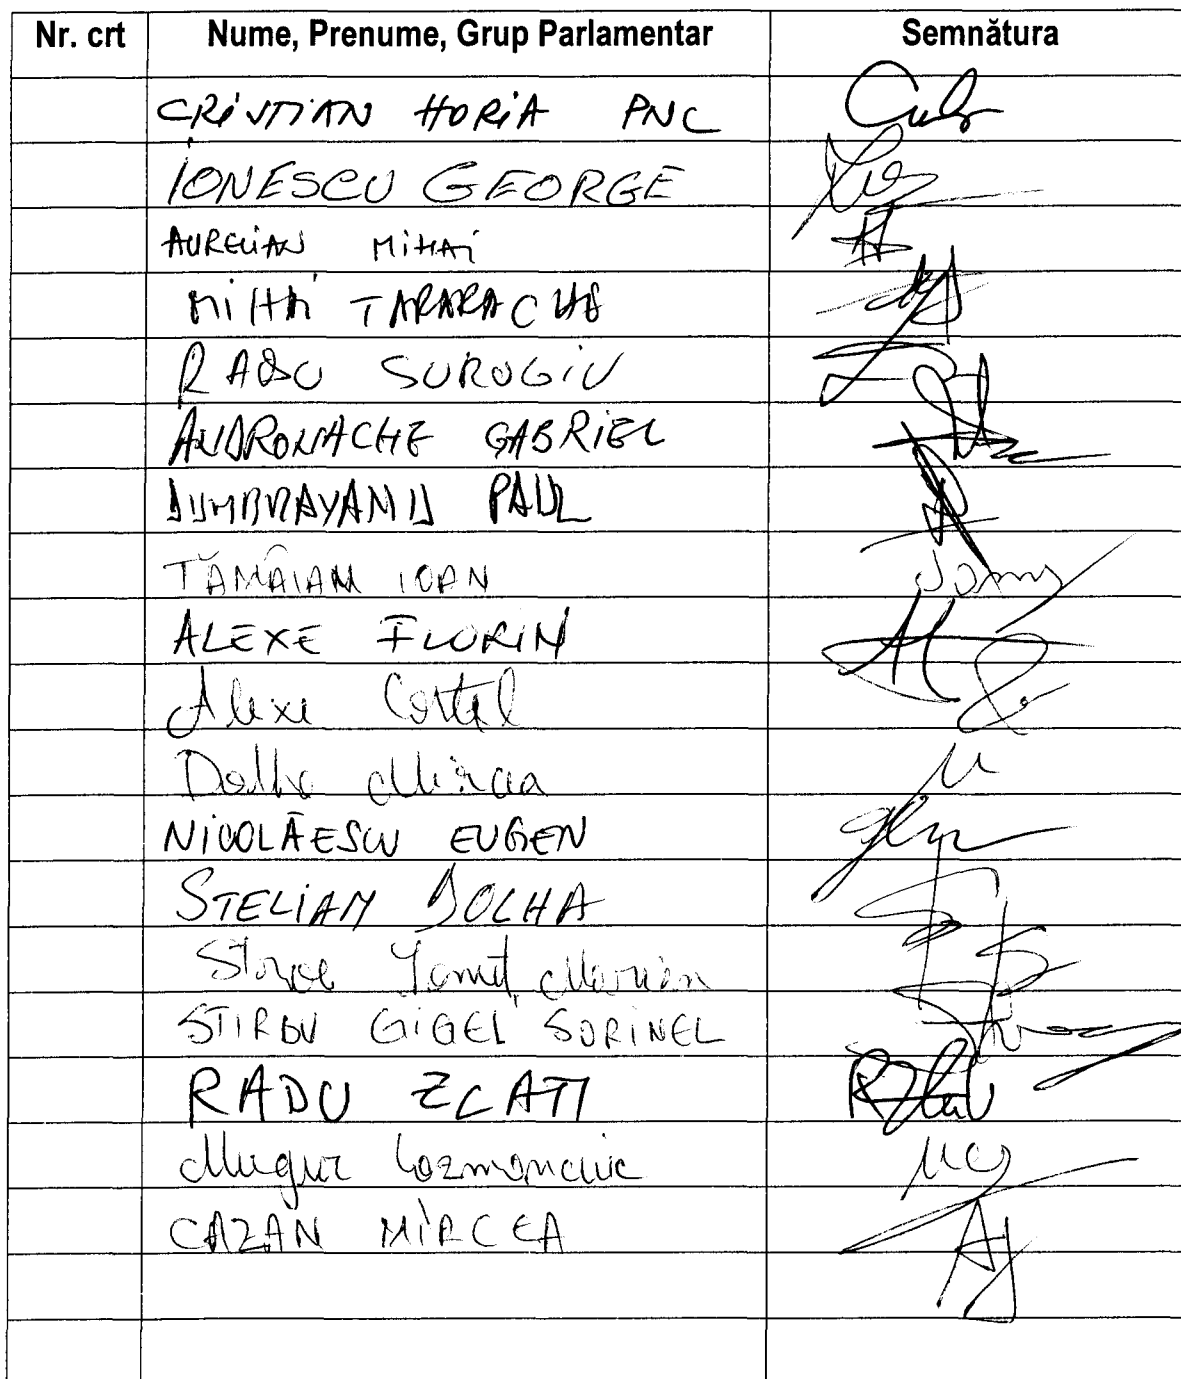 Nr. crt Nume, Prenume, Grup Parlamentar Semnătura
CRISTIAN HORIA PNL
IONESCU GEORGE
AURELIAN MIHAI
MIHAI TARARACHE
RADU SUROGIU
ANDRONACHE GABRIEL
DUMBRAVANU PAUL
TĂMÂIAN IOAN
ALEXE FLORIN
Alexe Costel
Dolha Mircea
NICOLĂESCU EUGEN
STELIAN DOLHA
Stroe Ionuț Marian
STIRBU GIGEL SORINEL
RADU ZLATI
Mugur Cozmanciuc
CAZAN MIRCEA